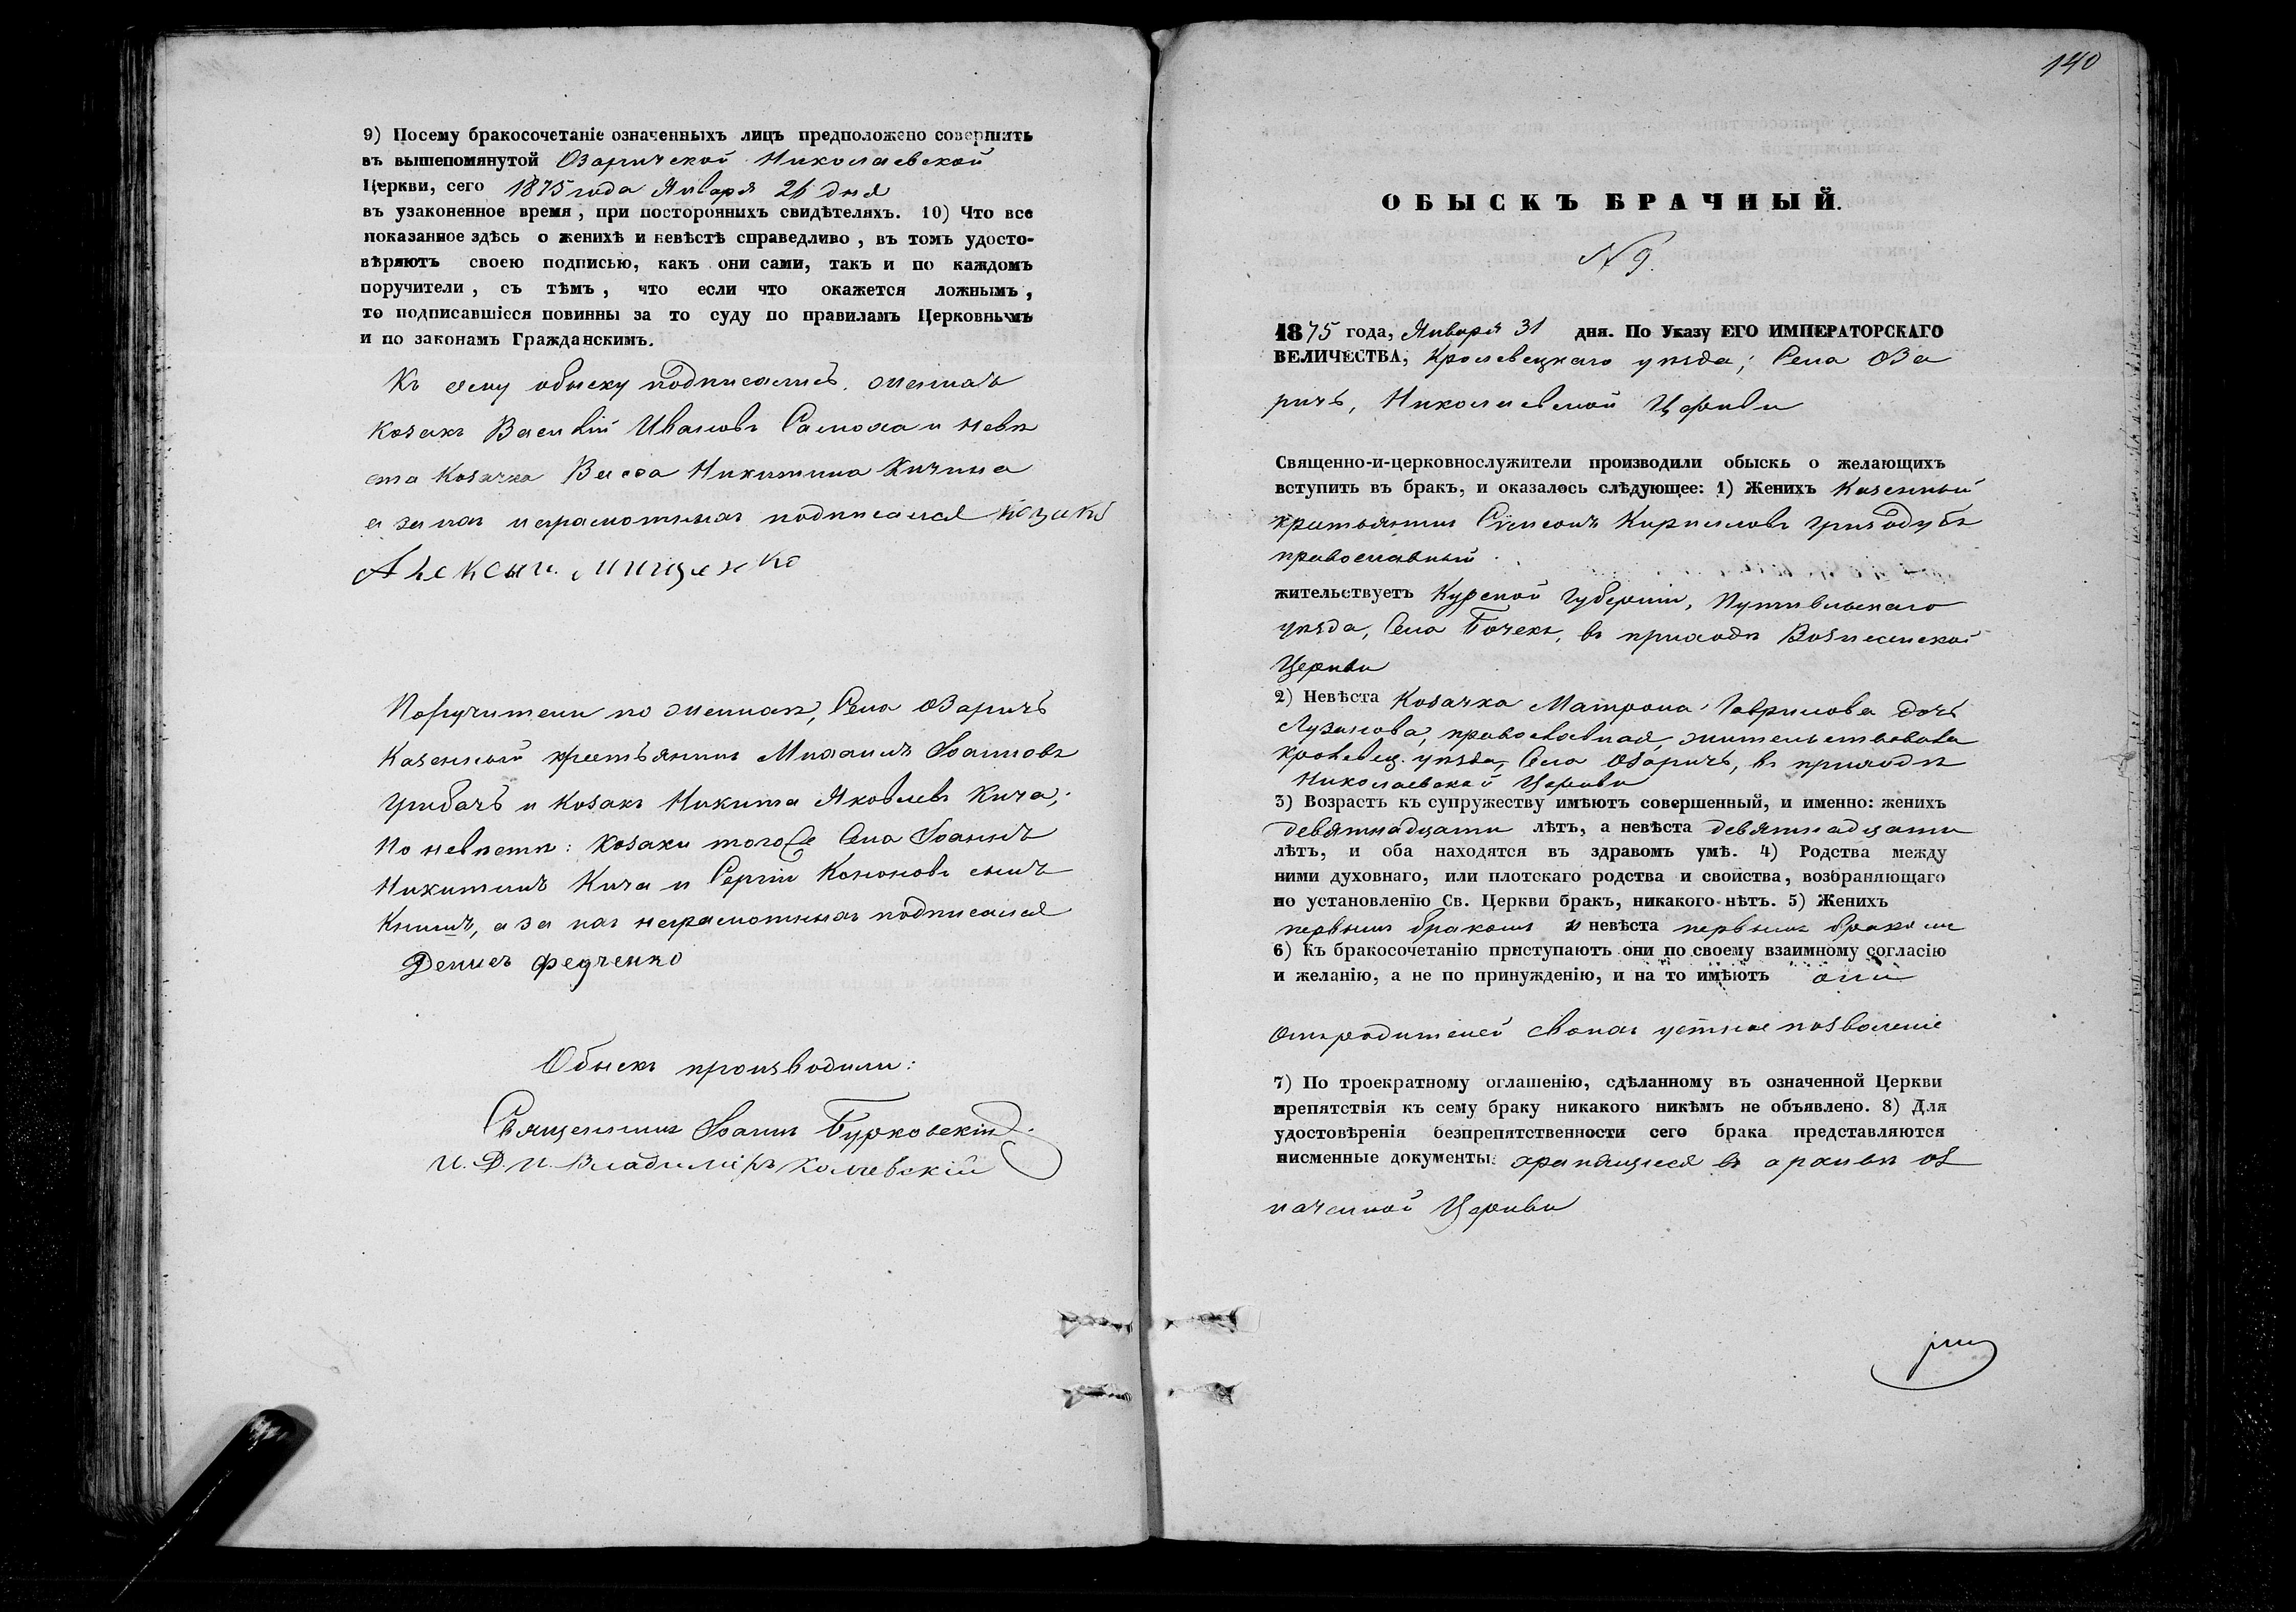 9) Посему бракосочетаніе означенныхъ лицъ предположено совершить
въ вышепомянутой Озаричской Николаевской
Церкви, сего 1875 года Января 26 дня
въ узаконенное время, при посторонныхъ свидѣтеляхъ. 10) Что все
показанное здѣсь о женихѣ и невѣстѣ справедливо, въ томъ удосто-
вѣряютъ своею подписью, какъ они сами, такъ и по каждомъ
поручители, съ тѣмъ, что если что окажется ложнымъ,
то подписавшіеся повинны за то суду по правиламъ Церковнымъ
и по законамъ Гражданскимъ.
Къ сему обыску подписались: женихъ
козакъ Василій Ивановъ Самоха и невѣ
ста козачка Васса Никитина Кичина
а за нихъ неграмотныхъ подписался козакъ
Алексѣй Мищенко
Поручители по женихѣ, Села Озаричъ
казенный крестьянинъ Михаилъ Іоанновъ
Грибачъ и козакъ Никита Яковлевъ Кича;
По невѣстѣ: козаки того же Села Іоаннъ
Никитинъ Кича и Сергій Кононовъ сынъ
Книшъ, а за нихъ неграмотныхъ подписался
Денисъ Федченко
Обыскъ производили:
Священникъ Іоаннъ Бурковскій
И. Д. П. Владиміръ
140
ОБЫСКЪ БРАЧНЫЙ.
№ 9.
1875 года, Января 31 дня. По Указу ЕГО ИМПЕРАТОРСКАГО
ВЕЛИЧЕСТВА, Кролевецкаго уѣзда, Села Оза
ричъ, Николаевской Церкви
Священно-и-церковнослужители производили обыскъ о желающихъ
вступить въ бракъ, и оказалось слѣдующее: 1) Женихъ Казенный
крестьянинъ Кирилловъ
православный
жительствуетъ Курской Губерніи, Путивльскаго
уѣзда, Села Бочекъ, въ приходѣ Вознесенской
Церкви
2) Невѣста Козачка Матрона Гаврилова дочь
Лузанова, православная, жительствовала
Кролевец. уѣзда, Села Озаричъ, въ приходѣ
Николаевской Церкви
3) Возрастъ къ супружеству имѣютъ совершенный, и именно: женихъ
девятнадцати лѣтъ, а невѣста девятнадцати
лѣтъ, и оба находятся въ здравомъ умѣ. 4) Родства между
ними духовнаго, или плотскаго родства и свойства, возбраняющаго
по установленію Св. Церкви бракъ, никакого нѣтъ. 5) Женихъ
первымъ бракомъ и невѣста первымъ бракомъ
6) Къ бракосочетанію приступаютъ они по своему взаимному согласію
и желанію, а не по принужденію, и на то имѣютъ они
отъ родителей своихъ устное позволеніе
7) По троекратному оглашенію, сдѣланному въ означенной Церкви
препятствія къ сему браку никакого никѣмъ не объявлено. 8) Для
удостовѣренія безпрепятственности сего брака представляются
писменные документы: хранящіеся въ архивѣ оз
наченной Церкви